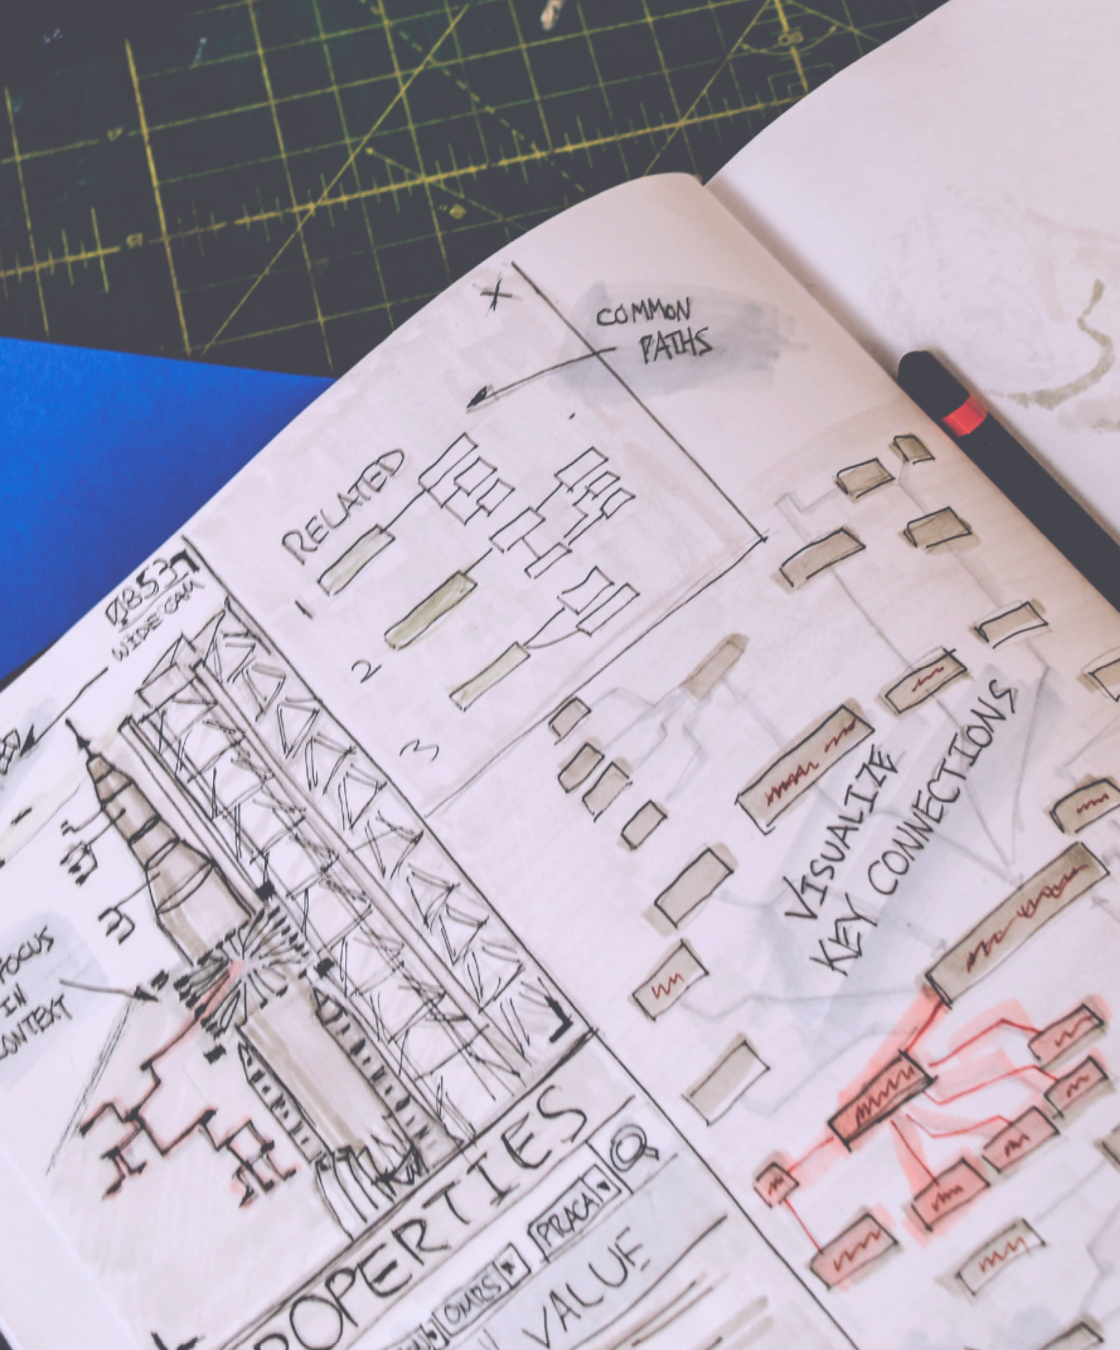 COMMON
PATHS
RELATED
1
2
3
WIDE CAM
FOCUS
IN
CONTEXT
VISUALIZE
KEY CONNECTIONS
PROPERTIES
PRACA
VALUE